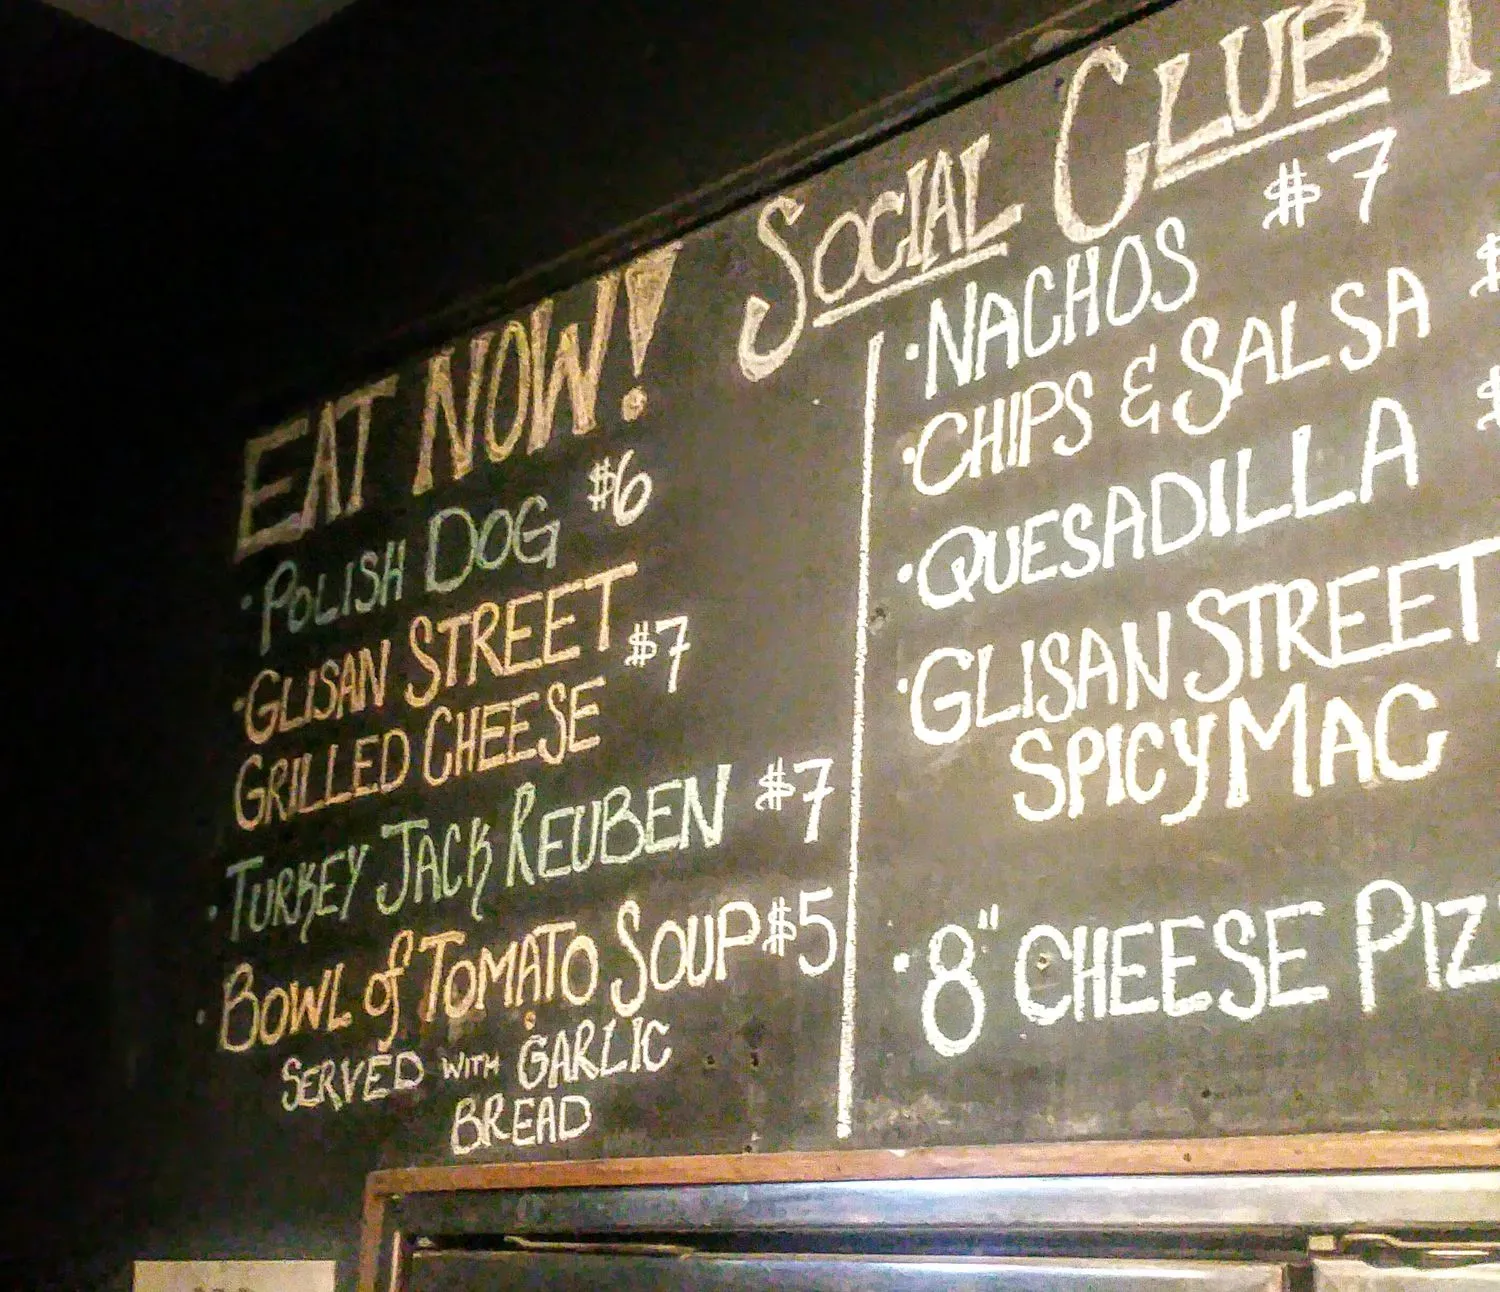 SOCIAL CLUB
EAT NOW!
· POLISH DOG $6
· GLISAN STREET
GRILLED CHEESE $7
· TURKEY JACK REUBEN $7
· BOWL of TOMATO SOUP $5
SERVED WITH GARLIC
BREAD
· NACHOS $7
· CHIPS & SALSA $
· QUESADILLA $
· GLISAN STREET
SPICY MAC
· 8" CHEESE PIZ